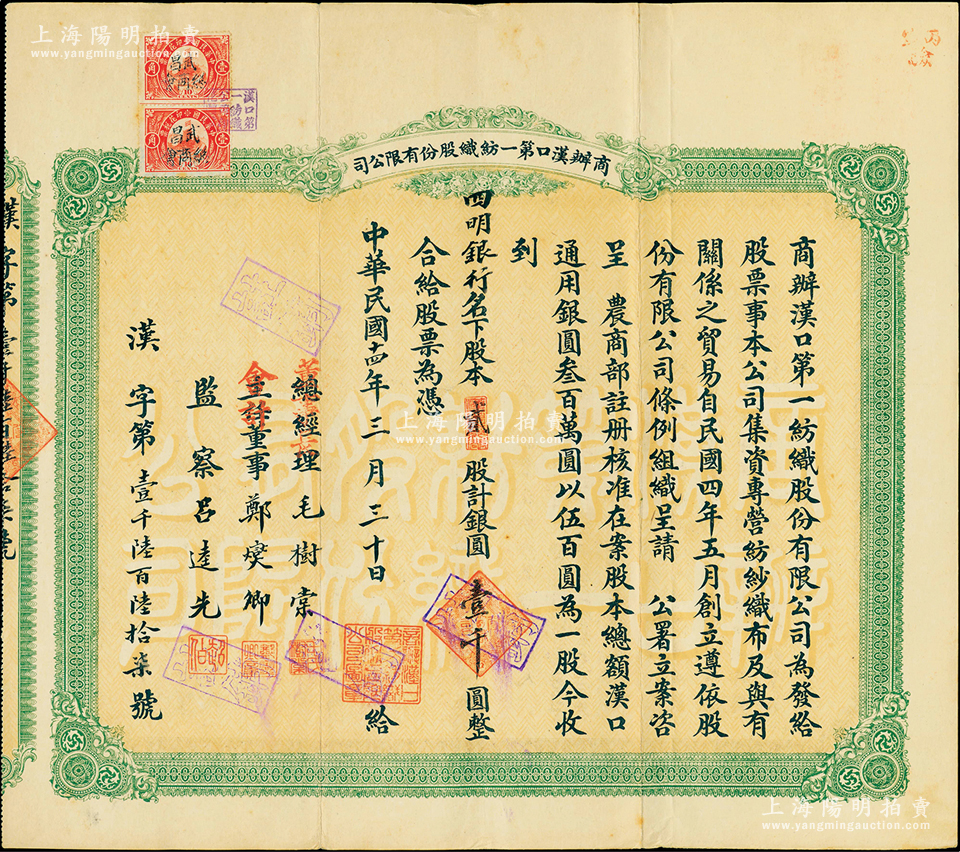 上海陽明拍賣
www.yangmingauction.com
武昌總商會
武昌總商會
商辦漢口第一紡織股份有限公司
商辦漢口第一紡織股份有限公司為發給
股票事本公司集資專營紡紗織布及與有
關係之貿易自民國四年五月創立遵依股
份有限公司條例組織呈請 公署立案咨
呈 農商部註册核准在案股本總額漢口
通用銀圓叁百萬圓以伍百圓為一股今收
到
四明銀行名下股本 貳 股計銀圓 壹千 圓整
合給股票為憑
中華民國十四年三月三十日 給
總經理 毛樹棠
董事 鄭燮卿
監察 呂逵先
漢 字第 壹千陸百陸拾柒 號
上海陽明拍賣
www.yangmingauction.com
上海陽明拍賣
www.yangmingauction.com